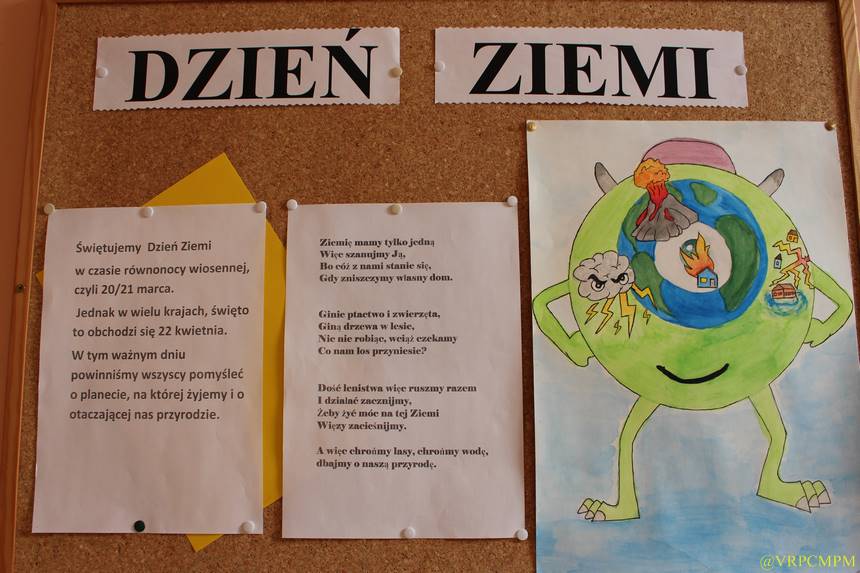 DZIEŃ ZIEMI
Świętujemy Dzień Ziemi
w czasie równonocy wiosennej,
czyli 20/21 marca.
Jednak w wielu krajach, święto
to obchodzi się 22 kwietnia.
W tym ważnym dniu
powinniśmy wszyscy pomyśleć
o planecie, na której żyjemy i o
otaczającej nas przyrodzie.
Ziemię mamy tylko jedną
Więc szanujmy Ją,
Bo cóż z nami stanie się,
Gdy zniszczymy własny dom.
Ginie ptactwo i zwierzęta,
Giną drzewa w lesie,
Nic nie robiąc, wciąż czekamy
Co nam los przyniesie?
Dość lenistwa więc ruszmy razem
I działać zacznijmy,
Żeby żyć móc na tej Ziemi
Więzy zacieśnijmy.
A więc chrońmy lasy, chrońmy wodę,
dbajmy o naszą przyrodę.
@VRPCMPM